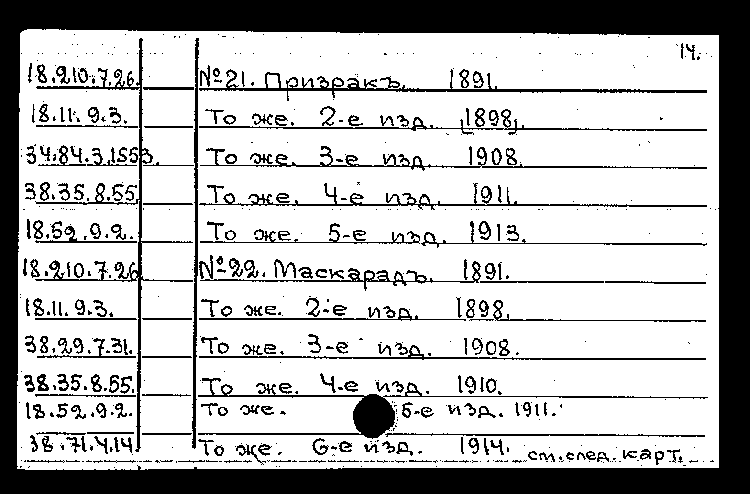 14.
18.210.7.26. №21. Призракъ. 1891.
18.11.9.3. То же. 2-е изд. [1898].
34.84.3.1553. То же. 3-е изд. 1908.
38.35.8.55. То же. 4-е изд. 1911.
18.52.9.2. То же. 5-е изд. 1913.
18.210.7.26 №22. Маскарадъ. 1891.
18.11.9.3. То же. 2-е изд. 1898.
38.29.7.31. То же. 3-е изд. 1908.
38.35.8.55. То же. 4-е изд. 1910.
18.52.9.2. То же. 5-е изд. 1911.
38.71.4.14. То же. 6-е изд. 1914. см. след. карт.